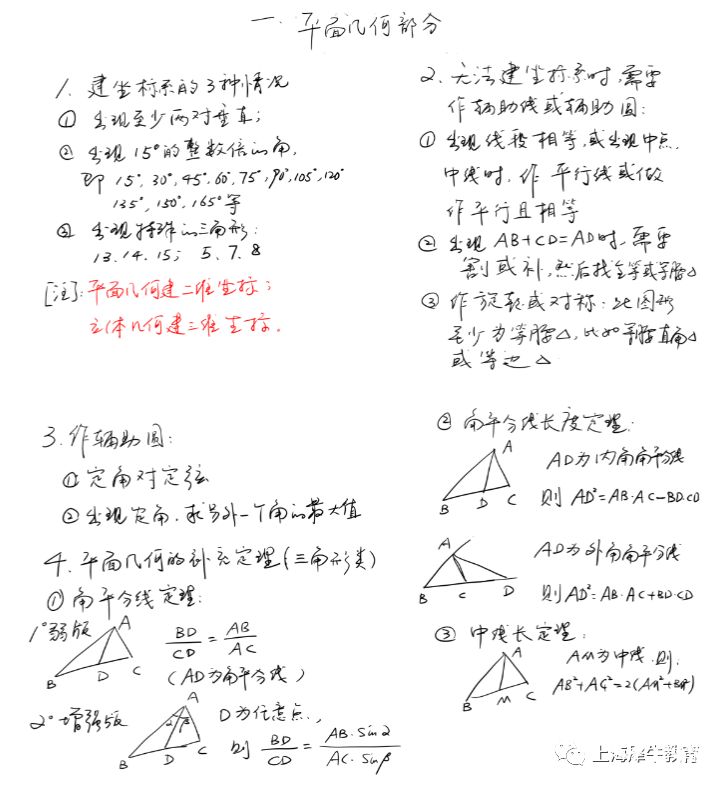 一. 平面几何部分
1. 建坐标系的3种情况
① 出现至少两对垂直;
② 出现15°的整数倍的角,
即 15°, 30°, 45°, 60°, 75°, 90°, 105°, 120°
135°, 150°, 165° 等
③ 出现特殊的三角形:
13. 14. 15; 5. 7. 8
[注]: 平面几何建二维坐标;
立体几何建三维坐标.
2. 无法建坐标系时, 需要
作辅助线或辅助圆:
① 出现线段相等, 或出现中点,
中线时, 作平行线或做
作平行且相等
② 出现 AB+CD=AD时, 需要
割或补, 然后找全等或等腰△
③ 作旋转或对称: 此图形
至少为等腰△, 比如等腰直角△
或等边△
3. 作辅助圆:
① 定角对定弦
② 出现定角, 求另外一个角的最大值
4. 平面几何的补充定理(三角形类)
① 角平分线定理:
1° 弱版
A
B
D
C
BD/CD = AB/AC
(AD为角平分线)
2° 增强版
A
α
β
B
D
C
D为任意点,
则 BD/CD = AB·Sinα/AC·Sinβ
② 角平分线长度定理:
A
B
D
C
AD为内角角平分线
则 AD²=AB·AC-BD·CD
A
B
C
D
AD为外角角平分线
则 AD²=AB·AC+BD·CD
③ 中线长定理:
A
B
M
C
AM为中线, 则,
AB²+AC²=2(AM²+BM²)
上海犀牛教育